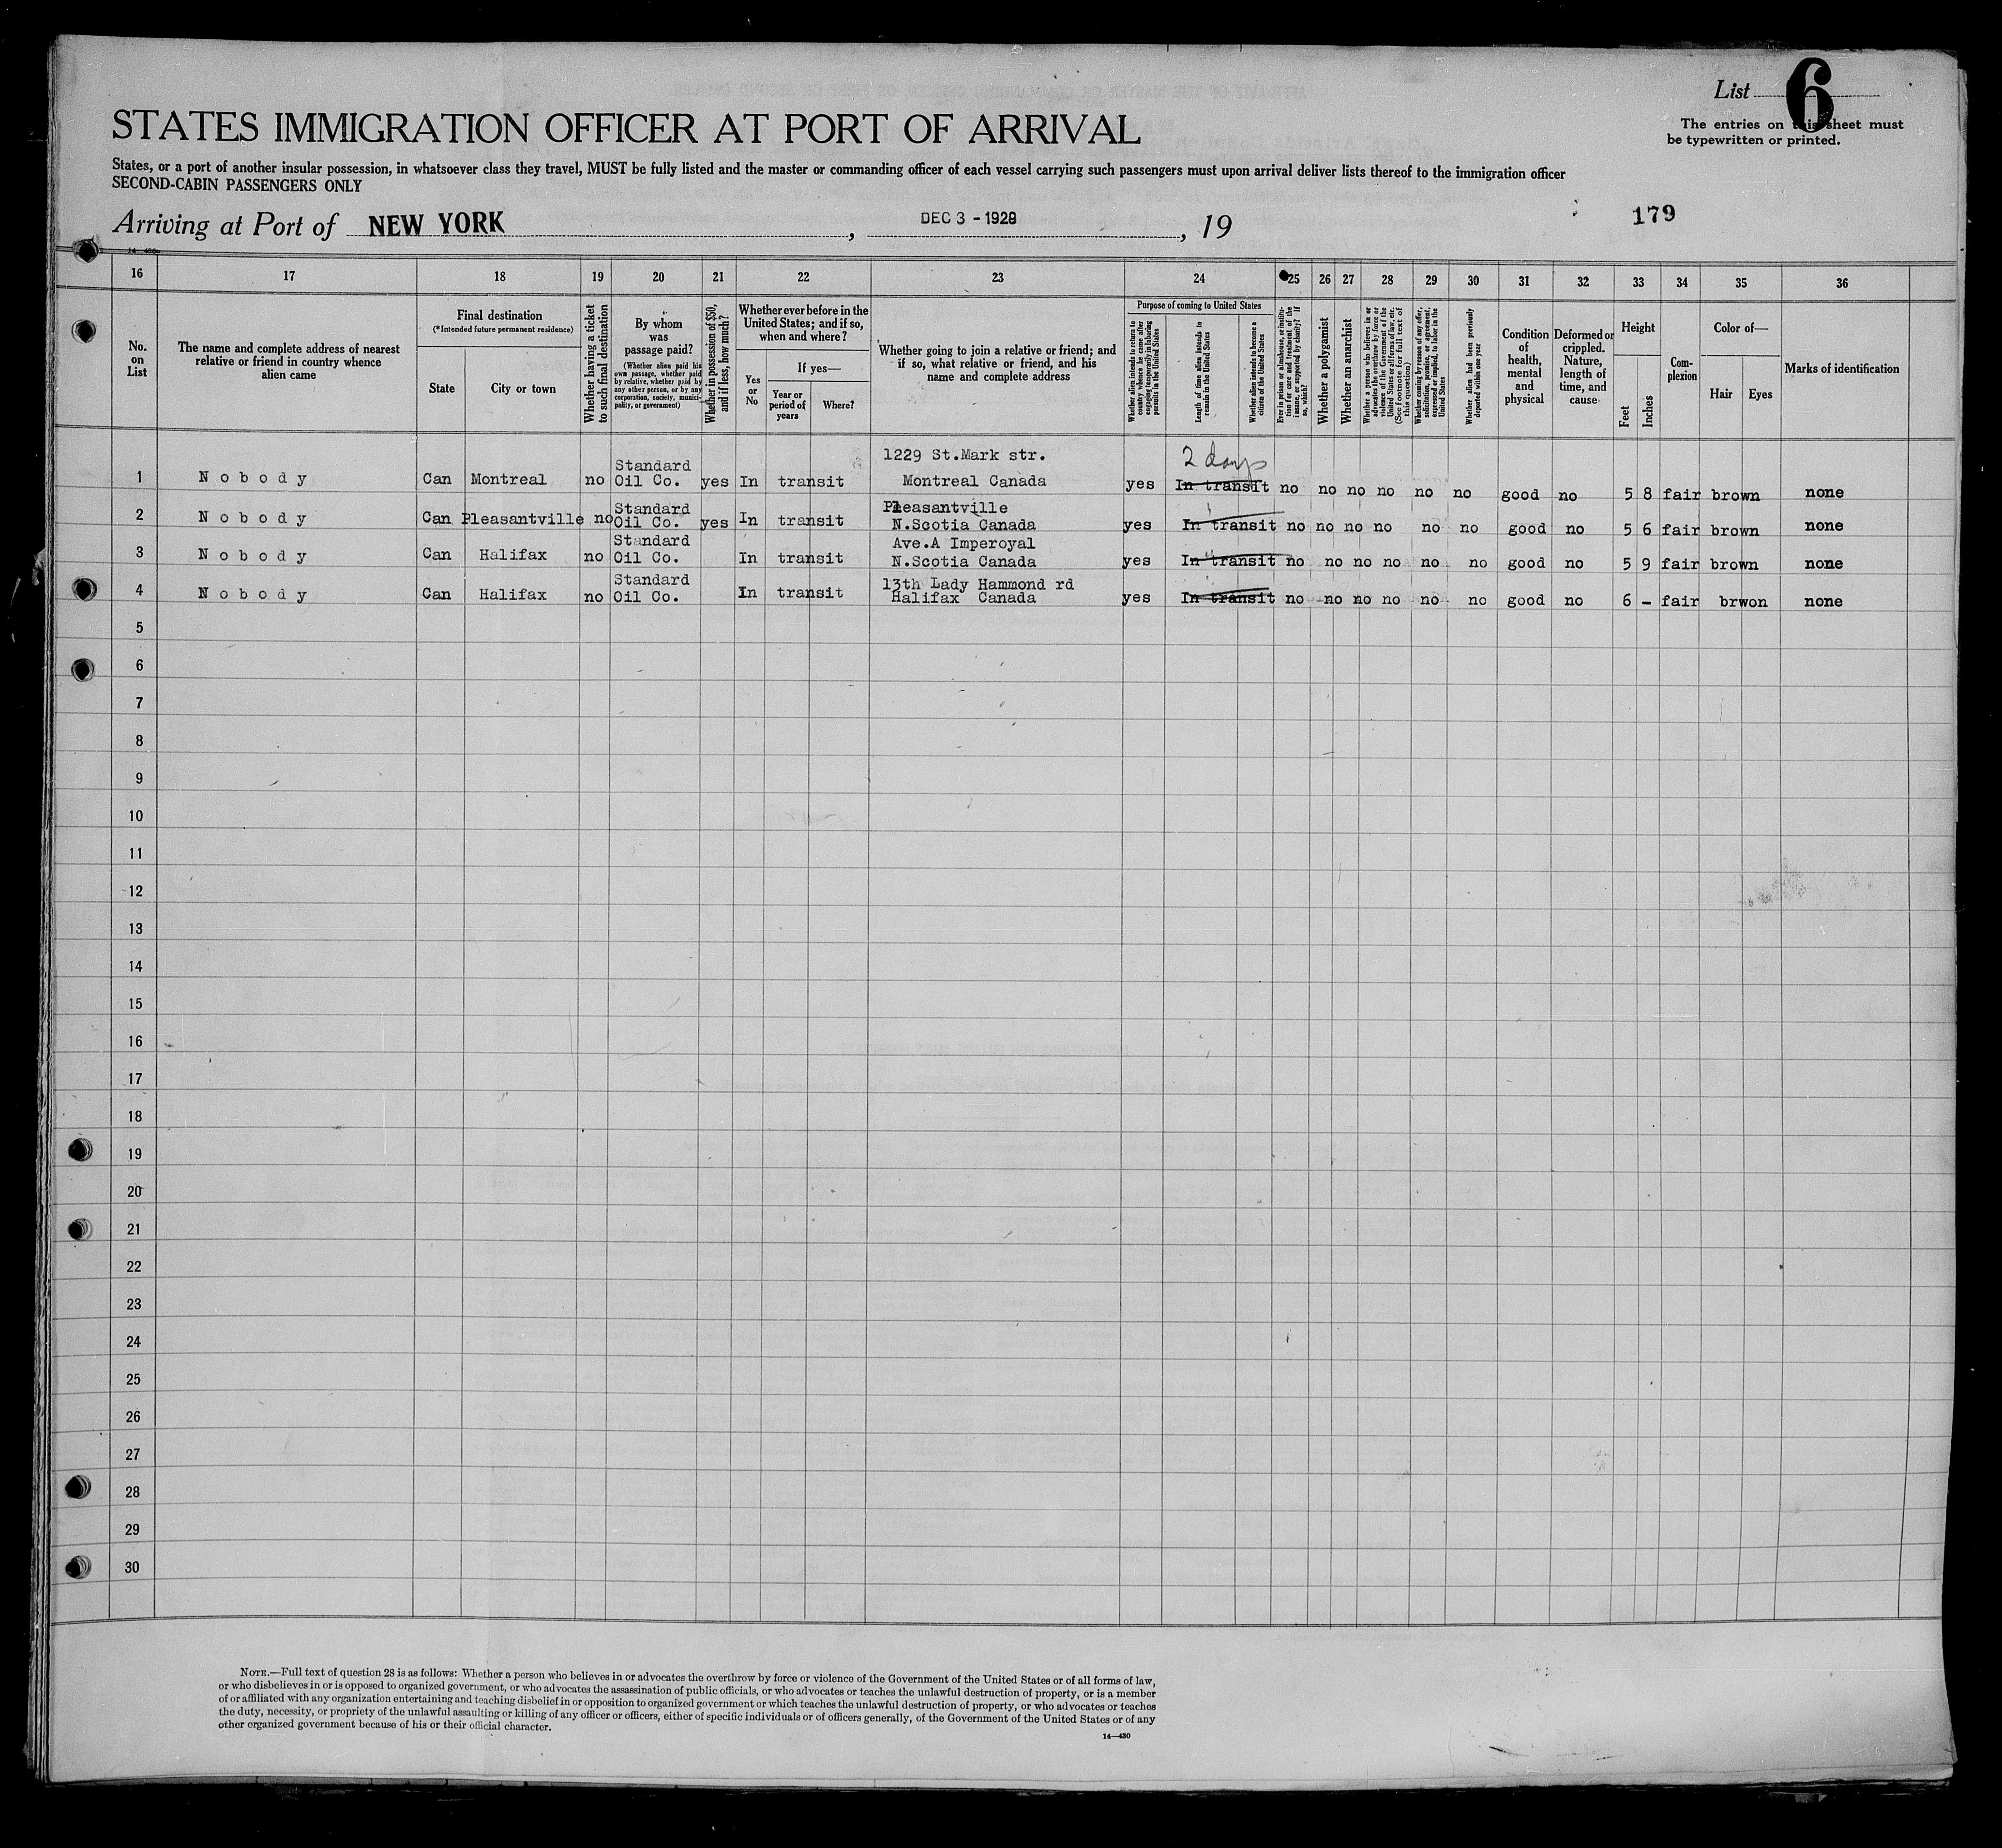 List 6
STATES IMMIGRATION OFFICER AT PORT OF ARRIVAL
The entries on this sheet must
be typewritten or printed.
States, or a port of another insular possession, in whatsoever class they travel, MUST be fully listed and the master or commanding officer of each vessel carrying such passengers must upon arrival deliver lists thereof to the immigration officer
SECOND-CABIN PASSENGERS ONLY
Arriving at Port of NEW YORK, DEC 3 - 1929, 19
179
16 17 18 19 20 21 22 23 24 25 26 27 28 29 30 31 32 33 34 35 36
No.
on
List
The name and complete address of nearest
relative or friend in country whence
alien came
Final destination
(*Intended future permanent residence)
State
City or town
Whether having a ticket
to such final destination
By whom
was
passage paid?
(Whether alien paid his
own passage, whether paid
by relative, whether paid by
any other person, or by any
corporation, society, munici-
pality, or government)
Whether in possession of $50,
and if less, how much?
Whether ever before in the
United States; and if so,
when and where?
Yes
or
No
If yes—
Year or
period of
years
Where?
Whether going to join a relative or friend; and
if so, what relative or friend, and his
name and complete address
Purpose of coming to United States
Whether alien intends to return to
country whence he came after
engaging temporarily in laboring
pursuits in the United States
Length of time alien intends to
remain in the United States
Whether alien intends to become a
citizen of the United States
Ever in prison or almshouse, or institu-
tion for care and treatment of the
insane, or supported by charity? If
so, which?
Whether a polygamist
Whether an anarchist
Whether a person who believes in or
advocates the overthrow by force or
violence of the Government of the
United States or all forms of law, etc.
(See footnote for full text of
this question)
Whether coming by reason of any offer,
solicitation, promise, or agreement,
expressed or implied, to labor in the
United States
Whether alien had been previously
deported within one year
Condition
of
health,
mental
and
physical
Deformed or
crippled.
Nature,
length of
time, and
cause
Height
Feet
Inches
Com-
plexion
Color of—
Hair
Eyes
Marks of identification
1 Nobody Can Montreal no Standard Oil Co. yes In transit 1229 St.Mark str. Montreal Canada yes 2 days In transit no no no no no no good no 5 8 fair brown none
2 Nobody Can Pleasantville no Standard Oil Co. yes In transit Pleasantville N.Scotia Canada yes In transit no no no no no no good no 5 6 fair brown none
3 Nobody Can Halifax no Standard Oil Co. In transit Ave.A Imperoyal N.Scotia Canada yes In transit no no no no no no good no 5 9 fair brown none
4 Nobody Can Halifax no Standard Oil Co. In transit 13th Lady Hammond rd Halifax Canada yes In transit no no no no no no good no 6 - fair brwon none
5
6
7
8
9
10
11
12
13
14
15
16
17
18
19
20
21
22
23
24
25
26
27
28
29
30
NOTE.—Full text of question 28 is as follows: Whether a person who believes in or advocates the overthrow by force or violence of the Government of the United States or of all forms of law,
or who disbelieves in or is opposed to organized government, or who advocates the assassination of public officials, or who advocates or teaches the unlawful destruction of property, or is a member
of or affiliated with any organization entertaining and teaching disbelief in or opposition to organized government or which teaches the unlawful destruction of property, or who advocates or teaches
the duty, necessity, or propriety of the unlawful assaulting or killing of any officer or officers, either of specific individuals or of officers generally, of the Government of the United States or of any
other organized government because of his or their official character.
14—430